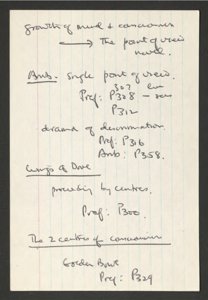 growth of mind & consciousness
⟶ The point of view
novel.
Amb: Single point of view.
Pref: P328
P312
drama of discrimination
Pref: P316
Amb: P358.
Wings of Dove
proceeding by centres.
Pref: P300.
The 2 centres of consciousness
Golden Bowl
Pref: P329